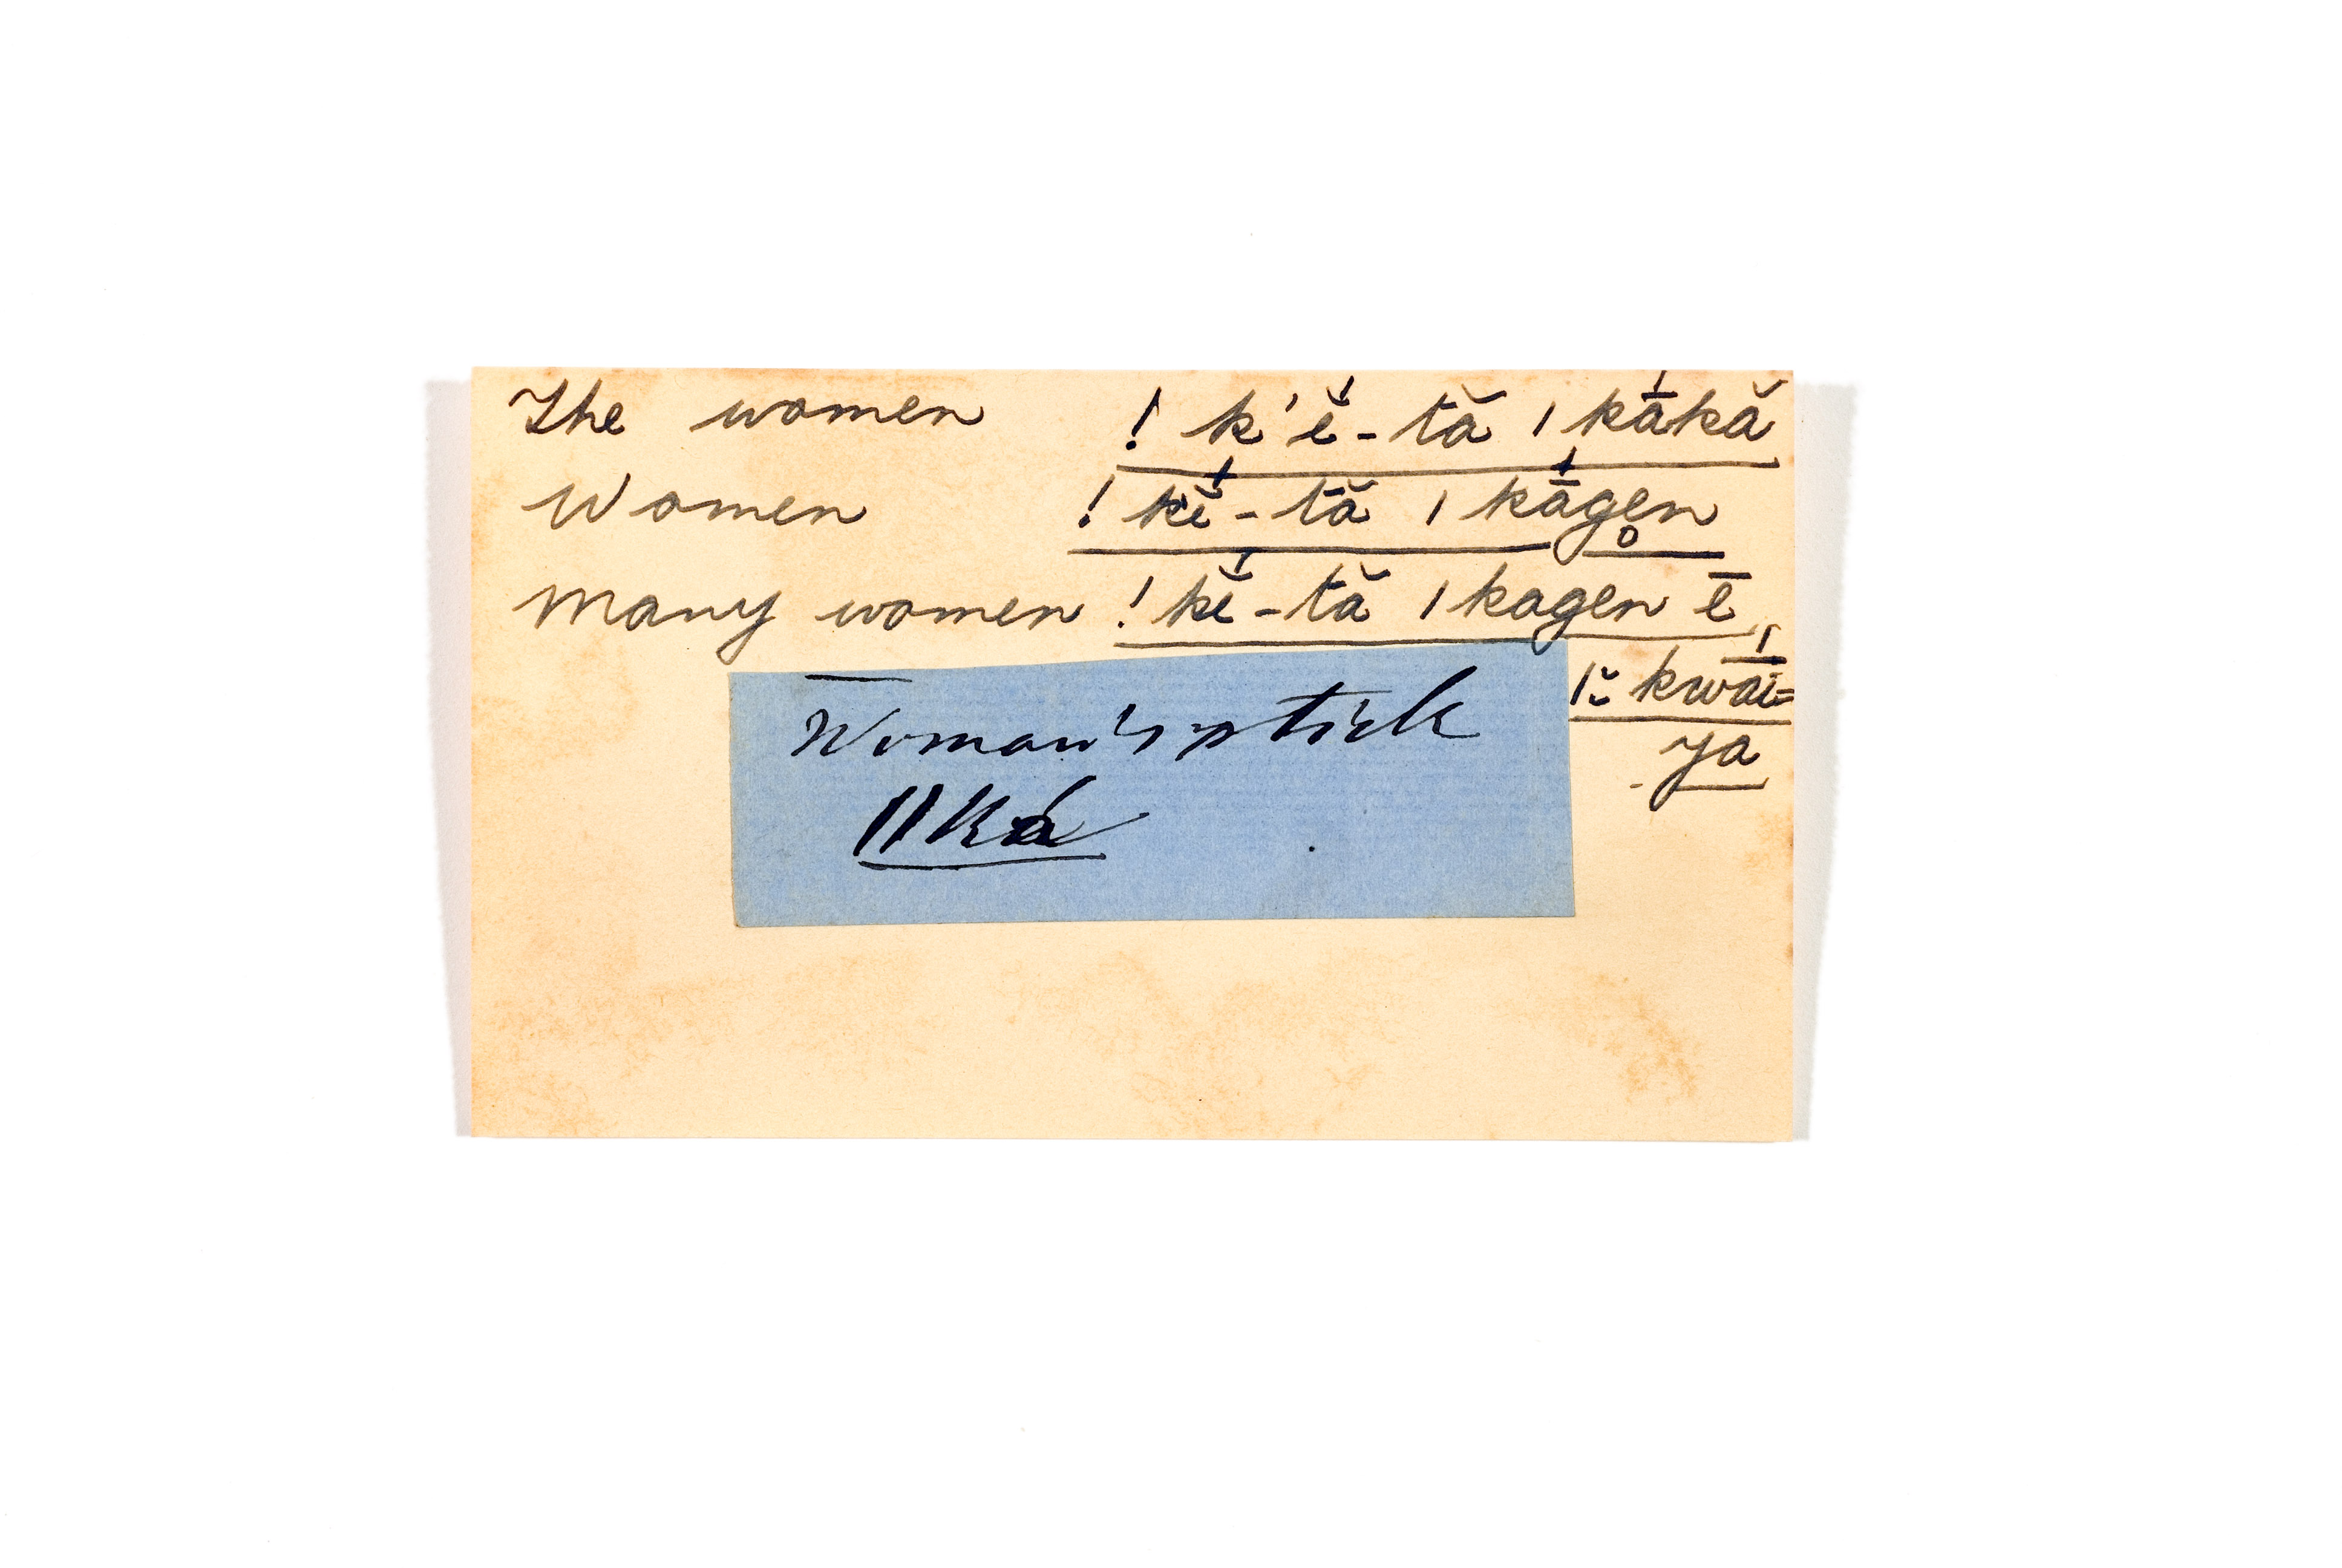 The women ! k'ĕ́-tă ǀ kā́kă
Women ! k'ĕ́-tă ǀ kā́gen̥
Many women ! kĕ́-tă ǀ kagen ē
ǀĭ kwā́i=
ya
Woman's stick
ǁká